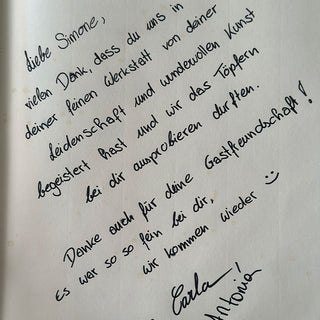 Liebe Simone,
vielen Dank, dass du uns in
deiner feinen Werkstatt von deiner
Leidenschaft und wundervollen Kunst
begeistert hast und wir das Töpfern
bei dir ausprobieren durften.
Danke auch für deine Gastfreundschaft!
Es war so so fein bei dir,
wir kommen wieder :)
Carla!
Antonia